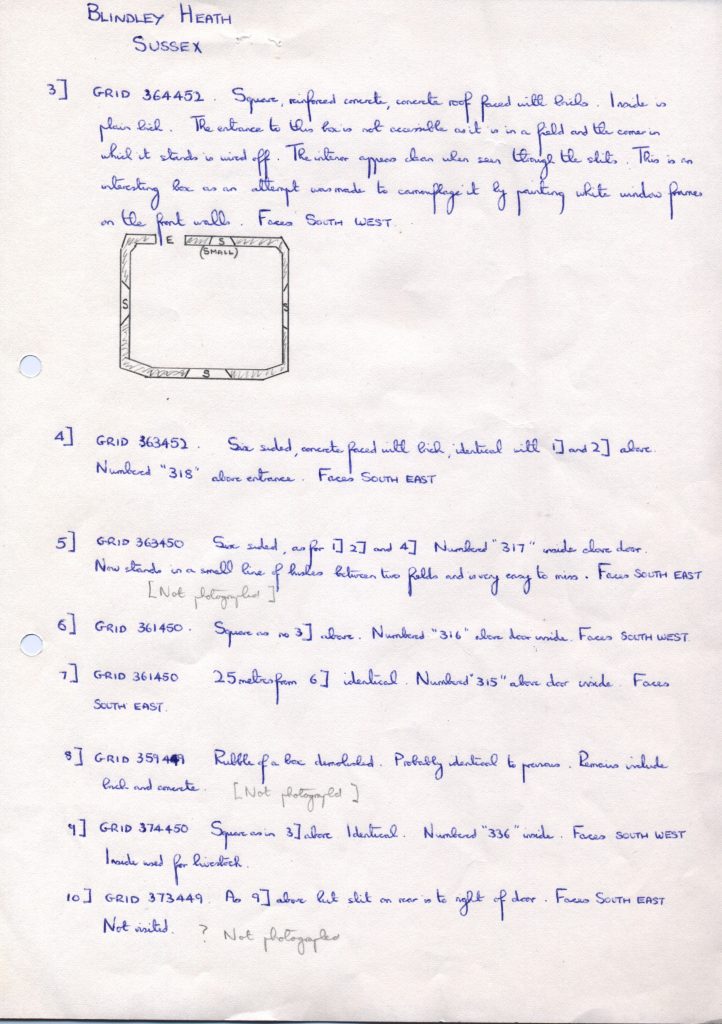 BLINDLEY HEATH
SUSSEX
3] GRID 364452. Square, reinforced concrete, concrete roof faced with bricks. Inside is
plain brick. The entrance to this box is not accessible as it is in a field and the corner in
which it stands is wired off. The interior appears clean when seen through the slits. This is an
interesting box as an attempt was made to camouflage it by painting white window frames
on the front walls. Faces SOUTH WEST.
E S
(SMALL)
S S
S
4] GRID 363452. Six sided, concrete faced with brick, identical with 1] and 2] above.
Numbered "318" above entrance. Faces SOUTH EAST
5] GRID 363450 Six sided, as for 1] 2] and 4] Numbered "317" inside above door.
Now stands in a small line of bushes between two fields and is very easy to miss. Faces SOUTH EAST
[Not photographed]
6] GRID 361450. Square as no 3] above. Numbered "316" above door inside. Faces SOUTH WEST
7] GRID 361450 25 metres from 6] identical. Numbered "315" above door inside. Faces
SOUTH EAST.
8] GRID 359449 Rubble of a box demolished. Probably identical to previous. Remains include
brick and concrete. [Not photographed]
9] GRID 374450 Square as in 3] above Identical. Numbered "336" inside. Faces SOUTH WEST
Inside used for livestock.
10] GRID 373449. As 9] above but slit on rear is to right of door. Faces SOUTH EAST
Not visited. ? Not photographed